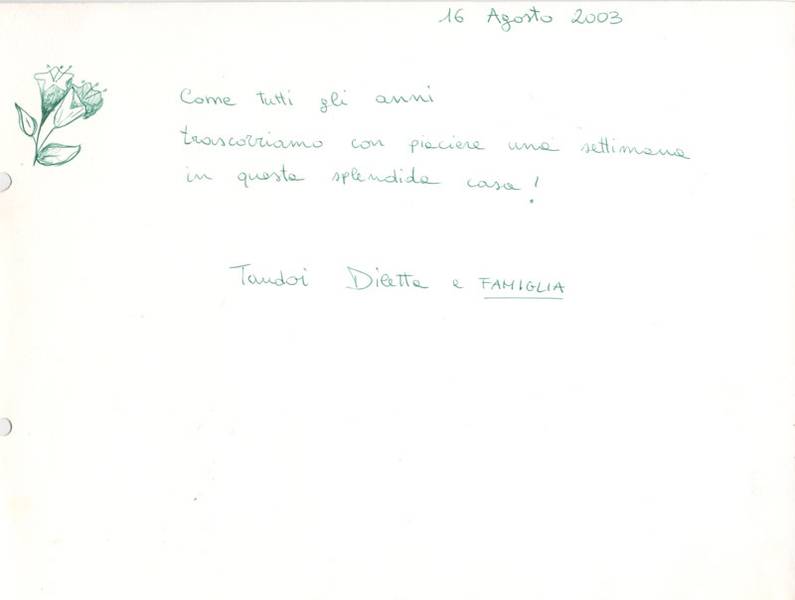 16 Agosto 2003
Come tutti gli anni
trascorriamo con piacere una settimana
in questa splendida casa!
Tandoi Diletta e FAMIGLIA